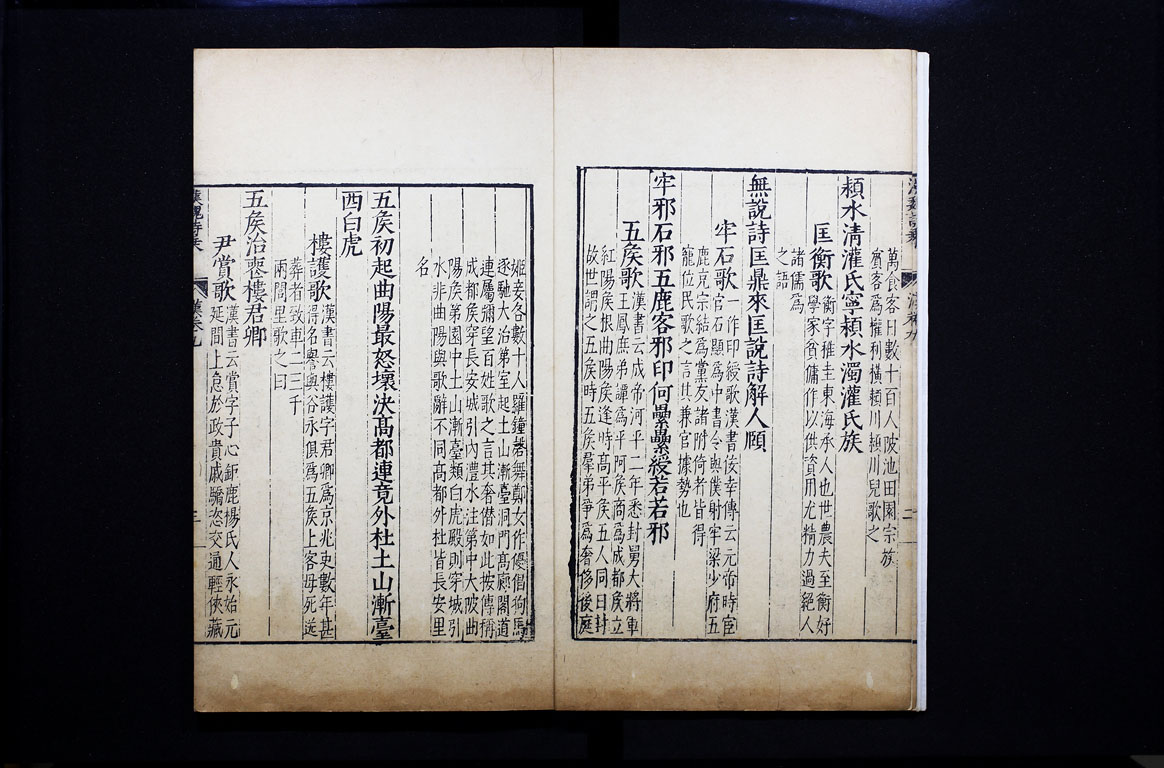 萬食客日數十百人陂池田園宗族
賓客為權利橫潁川潁川兒歌之
潁水清灌氏寧潁水濁灌氏族
匡衡歌
衡字稚圭東海承人也世農夫至衡好
學家貧傭作以供資用尤精力過絕人
諸儒為
之語
無說詩匡鼎來匡說詩解人頤
牢石歌
一作印綬歌漢書佞幸傳云元帝時宦
官石顯為中書令與僕射牢梁少府五
鹿充宗結為黨友諸附倚者皆得
寵位民歌之言其兼官據勢也
牢邪石邪五鹿客邪印何纍纍綬若若邪
五矦歌
漢書云成帝河平二年悉封舅大將軍
王鳳庶弟譚為平阿矦商為成都矦立
紅陽矦根曲陽矦逢時高平矦五人同日封
故世謂之五矦時五矦羣弟爭為奢侈後庭
姬妾各數十人羅鐘磬舞鄭女作優倡狗馬
逐馳大治第室起土山漸臺洞門高廊閣道
連屬彌望百姓歌之言其奢僭如此按傳稱
成都矦穿長安城引內灃水注第中大陂曲
陽矦第園中土山漸臺類白虎殿則穿城引
水非曲陽與歌辭不同高都外杜皆長安里
名
五矦初起曲陽最怒壞決高都連竟外杜土山漸臺
西白虎
樓護歌
漢書云樓護字君卿為京兆吏數年甚
得名譽與谷永俱為五矦上客母死送
葬者致車二三千
兩閭里歌之曰
五矦治喪樓君卿
尹賞歌
漢書云賞字子心鉅鹿楊氏人永始元
延間上怠於政貴戚驕恣交通輕俠藏
漢魏詩乘
漢卷九
三